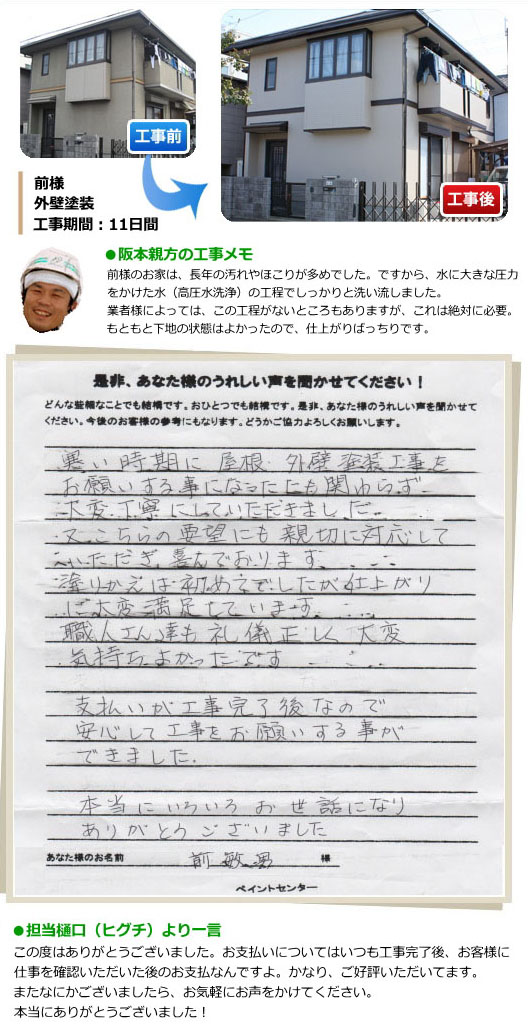 工事前
工事後
前様
外壁塗装
工事期間：11日間
●阪本親方の工事メモ
前様のお家は、長年の汚れやほこりが多めでした。ですから、水に大きな圧力
をかけた水（高圧水洗浄）の工程でしっかりと洗い流しました。
業者様によっては、この工程がないところもありますが、これは絶対に必要。
もともと下地の状態はよかったので、仕上がりばっちりです。
是非、あなた様のうれしい声を聞かせてください！
どんな些細なことでも結構です。おひとつでも結構です。是非、あなた様のうれしい声を聞かせて
ください。今後のお客様の参考にもなります。どうかご協力よろしくお願いします。
悪い時期に 屋根・外壁塗装工事を
お願いする事になったにも関わらず
大変丁寧にしていただきました。
又こちらの要望にも親切に対応して
いただき、喜んでおります。
塗りかえは初めてでしたが仕上がり
に大変満足しています。
職人さん達も礼儀正しく 大変
気持ちよかったです
支払いが工事完了後なので
安心して工事をお願いする事が
できました。
本当にいろいろお世話になり
ありがとうございました
あなた様のお名前 前 敏男 様
ペイントセンター
●担当樋口（ヒグチ）より一言
この度はありがとうございました。お支払いについてはいつも工事完了後、お客様に
仕事を確認いただいた後のお支払なんですよ。かなり、ご好評いただいてます。
またなにかございましたら、お気軽にお声をかけてください。
本当にありがとうございました！